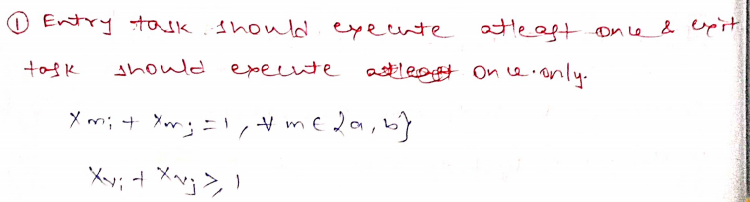 ① Entry task should execute atleast once & exit
task should execute atleast once only.
Xmi + Xmj = 1, ∀ m ∈ {a, b}
Xvi + Xvj ≥ 1